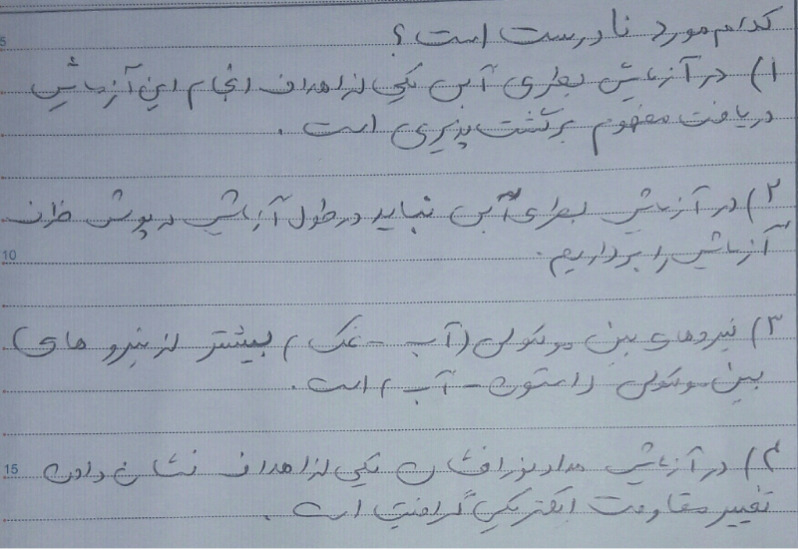 کدام مورد نادرست است؟
۱) در آزمایش بطری آبی یکی از اهداف انجام این آزمایش
دریافت مفهوم برگشت پذیری است.
۲) در آزمایش بطری آبی نباید در طول آزمایش درپوش ظرف
آزمایش را برداریم.
۳) نیروهای بین مولکولی (آب - نمک) بیشتر از نیرو های
بین مولکولی (استون - آب) است.
۴) در آزمایش مداد نورافشان یکی از اهداف نشان دادن
تغییر مقاومت الکتریکی گرافیت است.
5
10
15